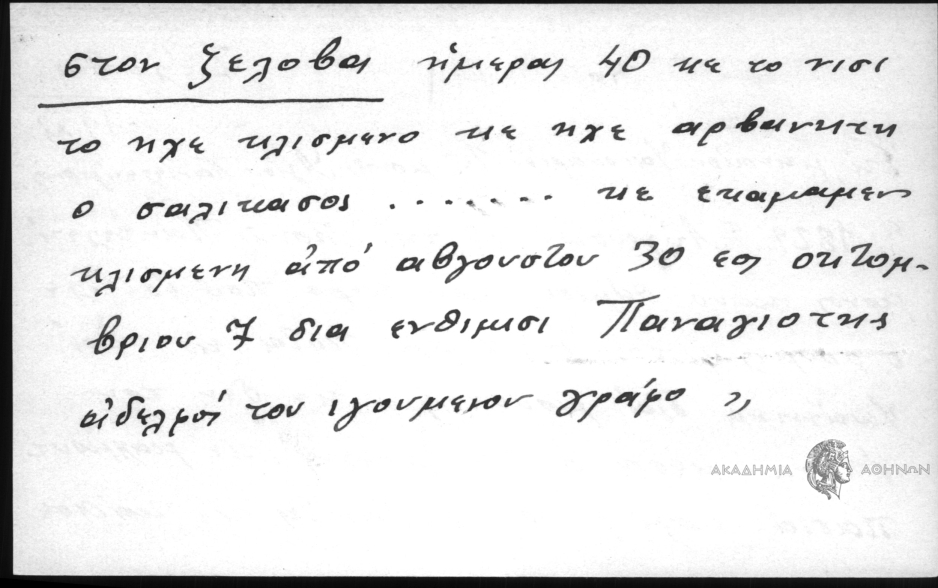 στον ξελοβαι ήμεραι 40 κε το νισι
το ηχε κλισμενο κε ηχε αρβανητη
ο σαλικασος ....... κε εκαμαμεν
κλισμενη ἀπό αβγουστου 30 εοι οκτομ-
βριου 7 δια ενθιμισι Παναγιοτης
ἀδελφοί του ιγουμενου γράφο »
ΑΚΑΔΗΜΙΑ ΑΘΗΝΩΝ